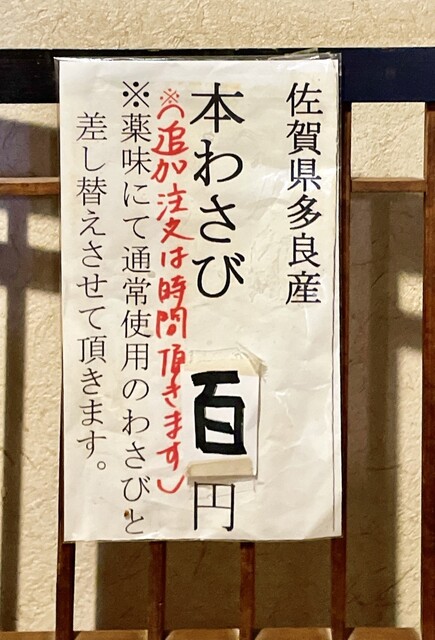 佐賀県多良産
本わさび 百円
※(追加注文は時間頂きます)
※薬味にて通常使用のわさびと
差し替えさせて頂きます。